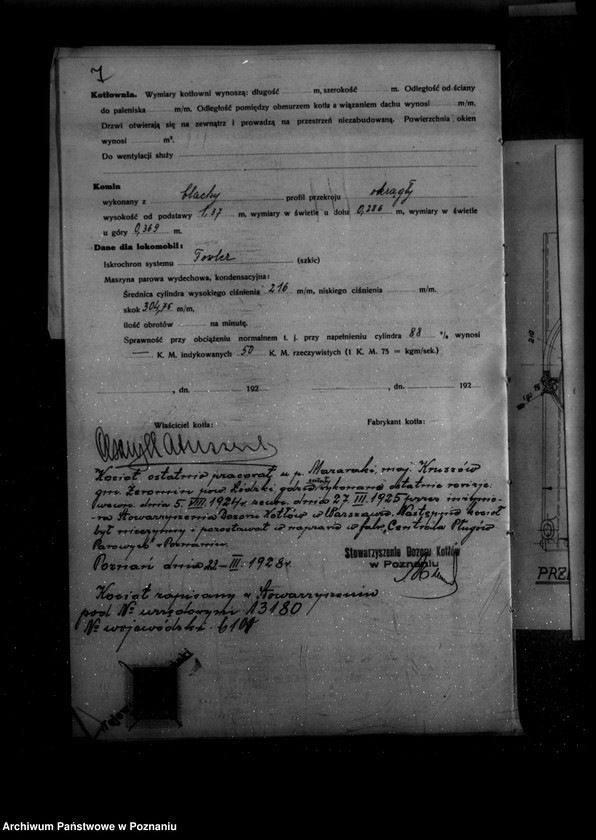 7
Kotłownia. Wymiary kotłowni wynoszą: długość m, szerokość m. Odległość od ściany
do paleniska m/m. Odległość pomiędzy obmurzem kotła a wiązaniem dachu wynosi m/m.
Drzwi otwierają się na zewnątrz i prowadzą na przestrzeń niezabudowaną. Powierzchnia okien
wynosi m².
Do wentylacji służy
Komin
wykonany z blachy profil przekroju okrągły
wysokość od podstawy 1,37 m, wymiary w świetle u dołu 0,286 m, wymiary w świetle
u góry 0,369 m.
Dane dla lokomobil:
Iskrochron systemu Fowler (szkic)
Maszyna parowa wydechowa, kondensacyjna:
Średnica cylindra wysokiego ciśnienia 216 m/m, niskiego ciśnienia m/m.
skok 304,75 m/m,
ilość obrotów na minutę.
Sprawność przy obciążeniu normalnem t. j. przy napełnieniu cylindra 88 % wynosi
— K. M. indykowanych 50 K. M. rzeczywistych (1 K. M. 75 = kgm/sek.)
, dn. 192 , dn. 192
Właściciel kotła: Fabrykant kotła:
Kocioł ostatnio pracował u p. maj. Kruszów
gm. Żeromin pow. Łódzki gdzie wykonano ostatnie rewizje:
wewn. dnia 5. VIII. 1924 r. zewn. dnia 27. III. 1925 przez inżynie-
ra Stowarzyszenia Dozoru Kotłów w Warszawie. Następnie kocioł
był nieczynny i pozostawał w naprawie w fabr. „Centrala Pługów
Parowych" w Poznaniu.
Poznań dnia 22–III. 1928 r.
Stowarzyszenie Dozoru Kotłów
w Poznaniu
Kocioł zapisany w Stowarzyszeniu
pod № urzędowym 13180
№ wojewódzki
PRZE
Archiwum Państwowe w Poznaniu